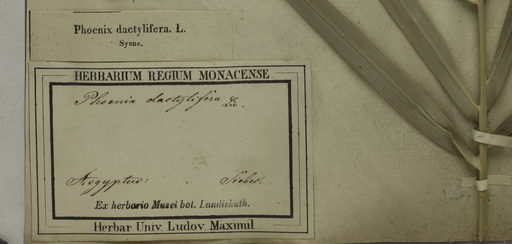 Phoenix dactylifera. L.
Syene.
HERBARIUM REGIUM MONACENSE
Phoenix dactylifera Lin.
Aegyptus: Sieber.
Ex herbario Musei bot. Landishuth.
Herbar Univ. Ludov. Maximil